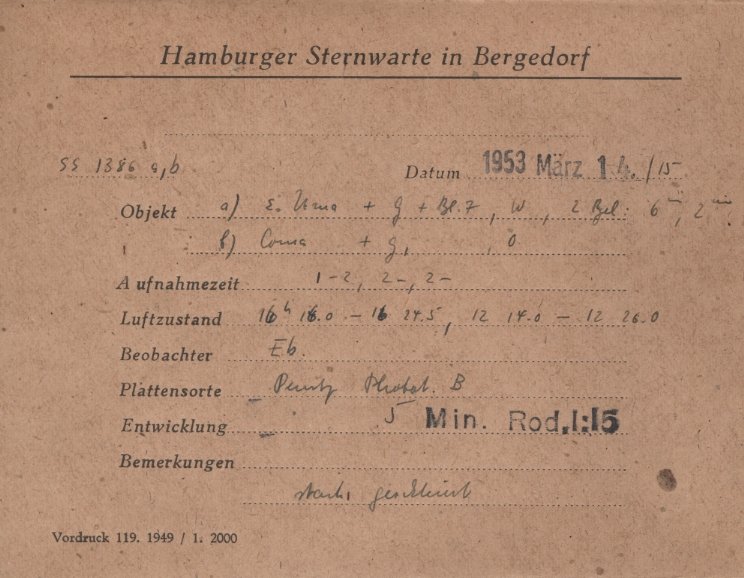 Hamburger Sternwarte in Bergedorf
SS 1386 a,b
Datum 1953 März 14./15
Objekt a) ε. Uma + g + Bl. 7, W, 2 Bel: 6 m, 2 m
b) Coma + g, , O
Aufnahmezeit 1-2, 2-, 2-
Luftzustand 16 h 18.0 - 16 24.5, 12 14.0 - 12 26.0
Beobachter Eb.
Plattensorte B
Entwicklung 5 Min. Rod. 1:15
Bemerkungen
Vordruck 119. 1949 / 1. 2000